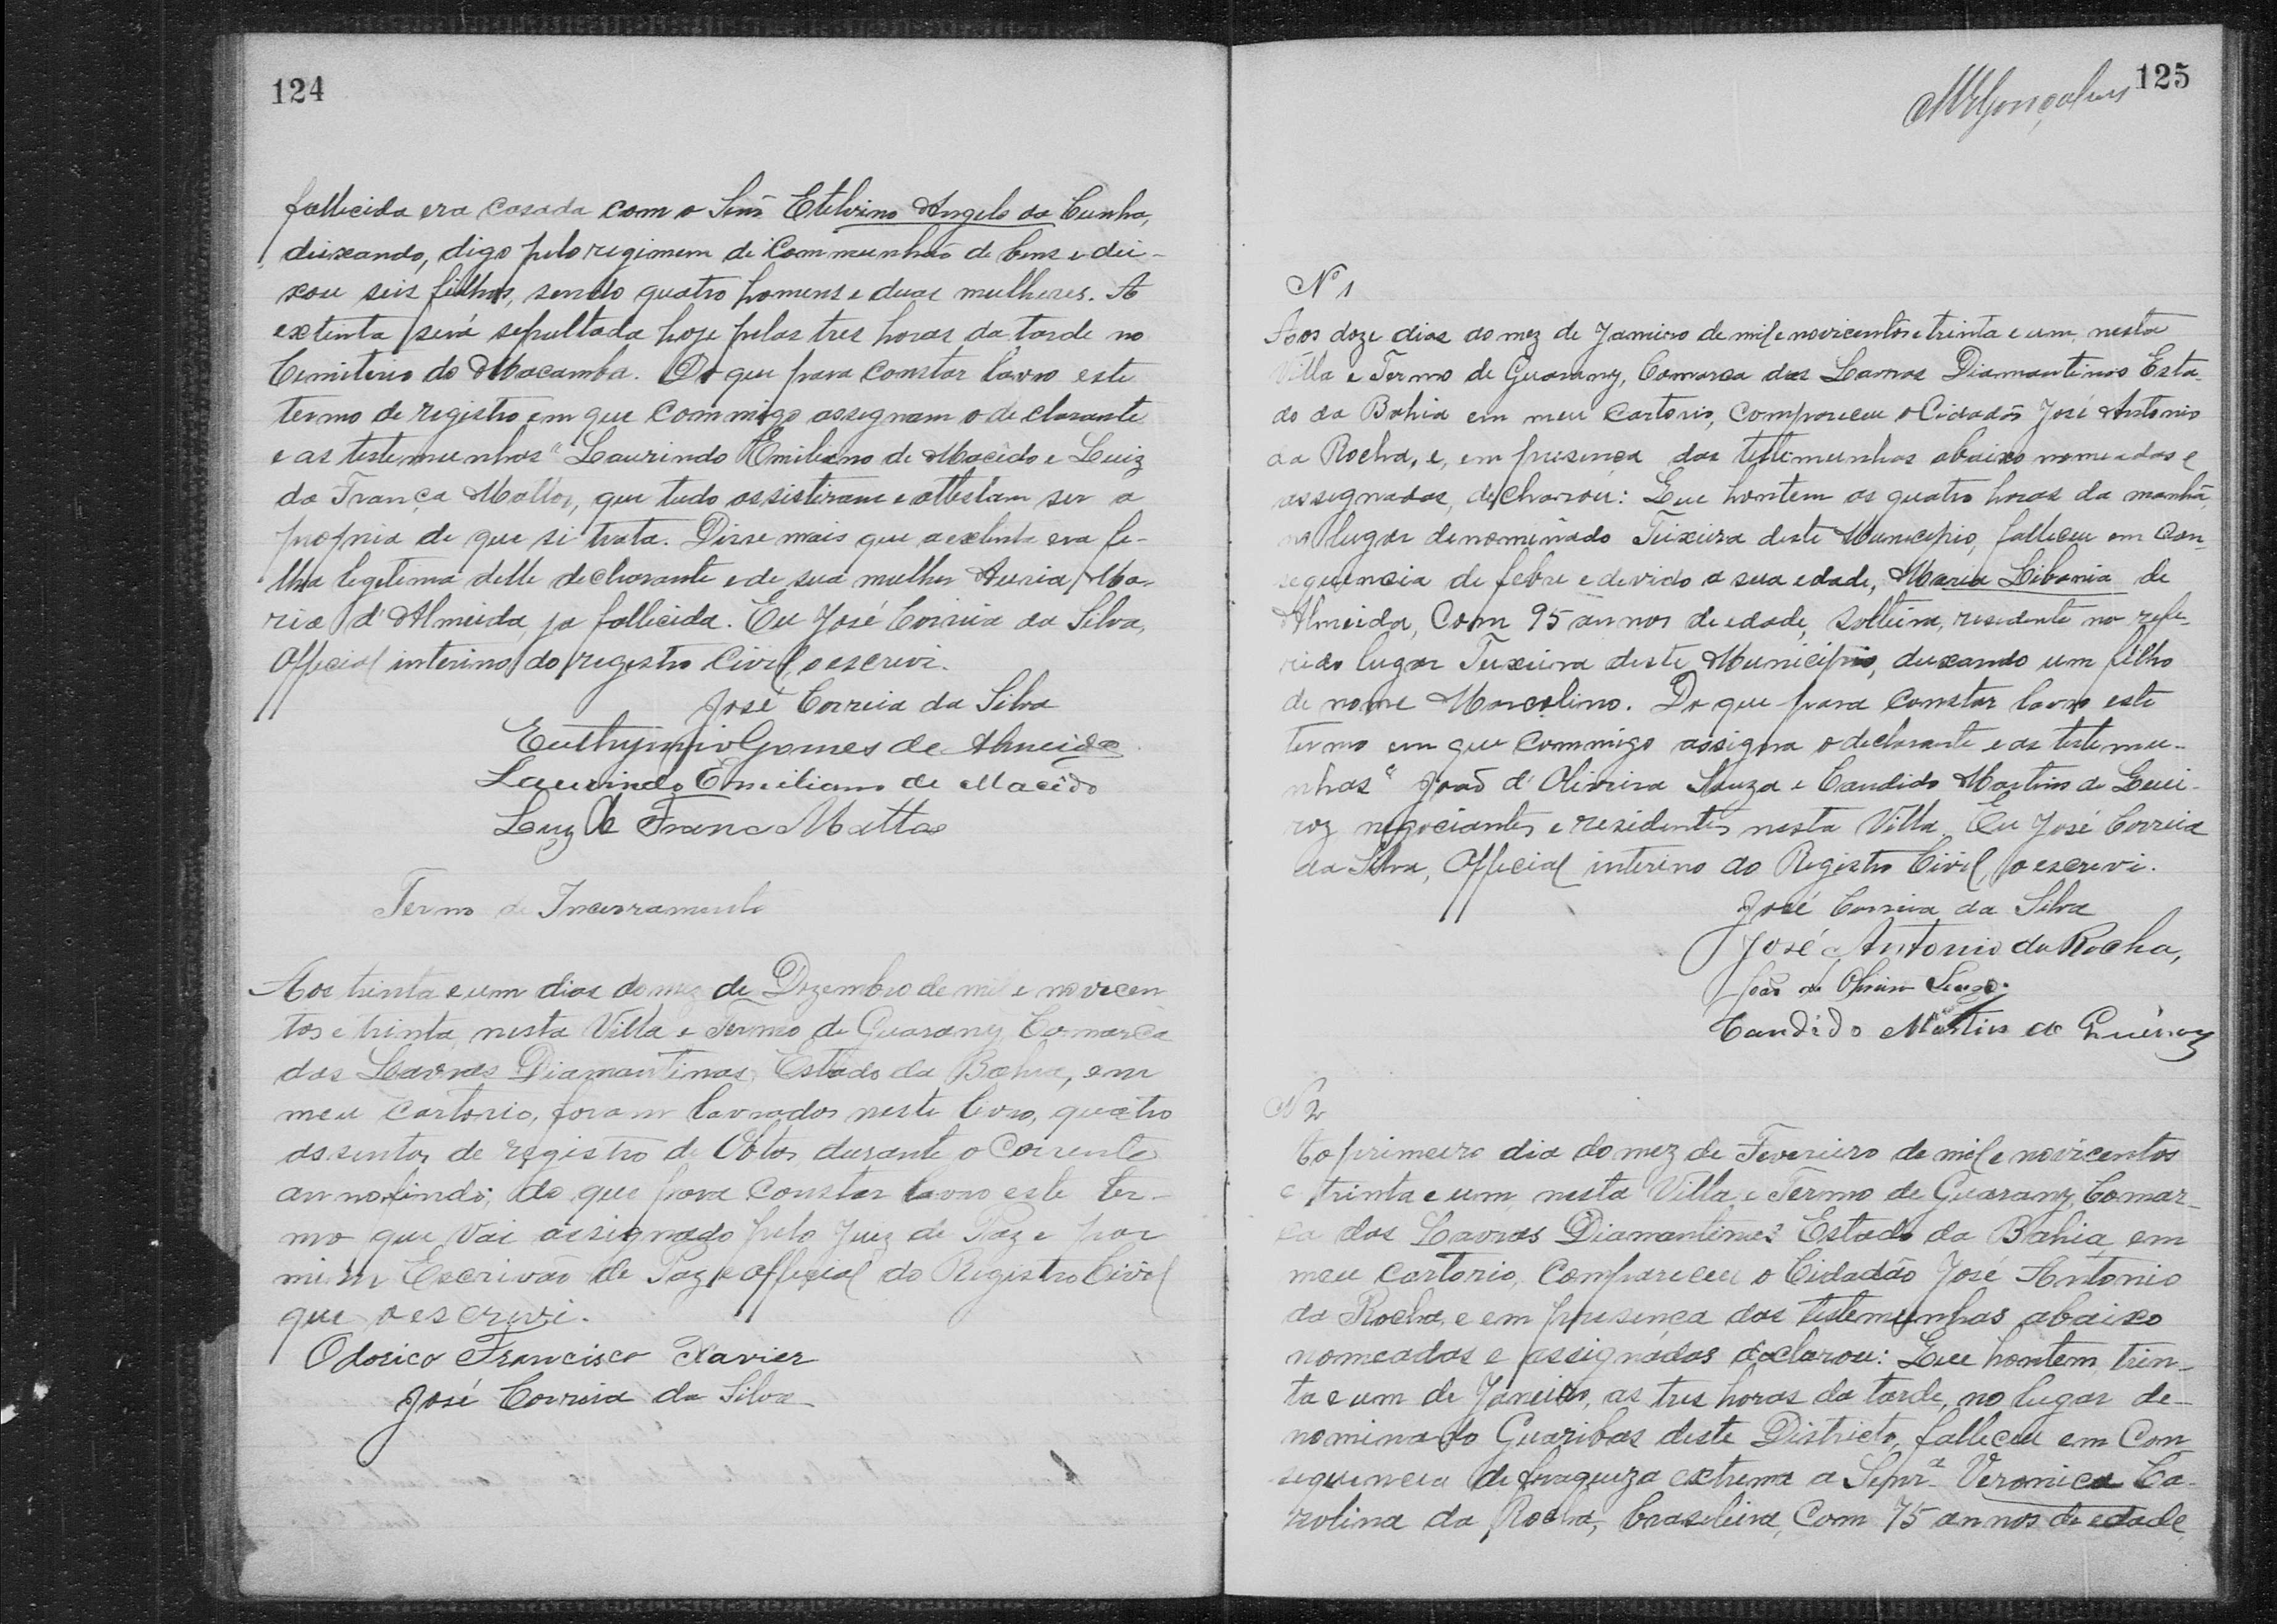 124
fallecida era casada com o Senr. Etelvino Angelo da Cunha,
deixando, digo pelo regimem de Communhão de bens e dei-
xou seis filhos, sendo quatro homens e duas mulheres. A
extinta será sepultada hoje pelas tres horas da tarde no
Cemiterio do Macamba. Do que para constar lavro este
termo de registro em que commigo assignam o declarante
e as testemunhas" Laurindo Emiliano de Macêdo e Luiz
da França Mattos, que tudo assistiram e attestam ser a
propria de que si trata. Disse mais que a extinta era fi-
lha legitima delle declarante e de sua mulher Auria Ma-
ria d'Almeida, ja fallecida. Eu José Correia da Silva,
Official interino do registro Civil, o escrevi.
José Correia da Silva
Euthymio Gomes de Almeida
Laurindo Emiliano de Macêdo
Luiz de Franc Mattos
Termo de Incerramento
Aos trinta e um dias do mez de Dezembro de mil e novecen
tos e trinta, nesta Villa e Termo de Guarany, Comarca
das Lavras Diamantinas, Estado da Bahia, em
meu cartorio, foram lavrados neste livro, quatro
assentos de registro de Obitos durante o corrente
anno findo; do que para constar lavro este ter-
mo que vai assignado pelo Juiz de Paz e por
mim Escrivão de Paz e official do Registro Civil
que o escrevi.
Odorico Francisco Xavier
José Correia da Silva
125
MRGonçalves
Nº 1
Aos doze dias do mez de Janeiro de mil e novicentos e trinta e um, nesta
Villa e Termo de Guarany, Comarca das Lavras Diamantinas Esta-
do da Bahia em meu Cartorio, compareceu o Cidadão José Antonio
da Rocha, e, em presença das testemunhas abaixo nomeadas e
assegnadas, declarou: Que hontem as quatro horas da manhã,
no lugar denominado Teixeira deste Municipio, falleceu em Con-
sequencia de febre e devido a sua edade, Maria Libania de
Almeida, Com 95 annos de edade, solteira, residente no refe-
rido lugar Teixeira deste Municipio, deixando um filho
de nome Marcolino. Do que para constar lavro este
termo em que commigo assigna o declarante e as testemu-
nhas" João d'Oliveira Souza e Candido Martins de Quei-
roz, negociantes e residentes nesta Villa. Eu José Correia
da Silva, Official interino do Registro Civil, o escrevi.
José Correia da Silva
José Antonio da Rocha,
João de Oliveira Souza.
Candido Martins de Queiroz
N 2
Ao primeiro dia do mez de Fevereiro de mil e novicentos
e trinta e um, nesta Villa e Termo de Guarany, Comar-
ca das Lavras Diamantinas Estado da Bahia, em
meu cartorio, compareceu o Cidadão José Antonio
da Rocha, e em presença das testemunhas abaixo
nomeadas e assignadas declarou: Que hontem, trin-
ta e um de Janeiro, as tres horas da tarde, no lugar de-
nominado Guaribas deste Districto, falleceu em Con-
sequencia de fraqueza extrema a Senrª Veronica Ca-
rolina da Rocha, brasileira, Com 75 annos de edade,